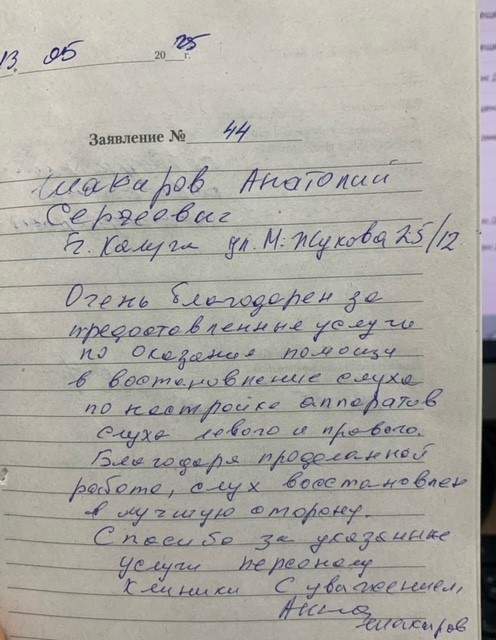 13. 05 2025 г.
Заявление № 44
Шакиров Анатолий
Сергеевич
г. Калуга ул. М. Жукова 25/12
Очень благодарен за
предоставленные услуги
по оказания помощи
в востановление слуха
по настройке аппаратов
слуха левого и правого.
Благодаря проделанной
работе, слух восстановлен
в лучшую сторону.
Спасибо за указанные
услуги персоналу
клиники С уважением,
Шакиров